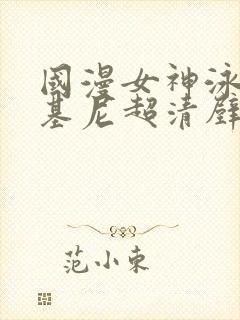 國漫女神泳
基尼超清壁
范小東